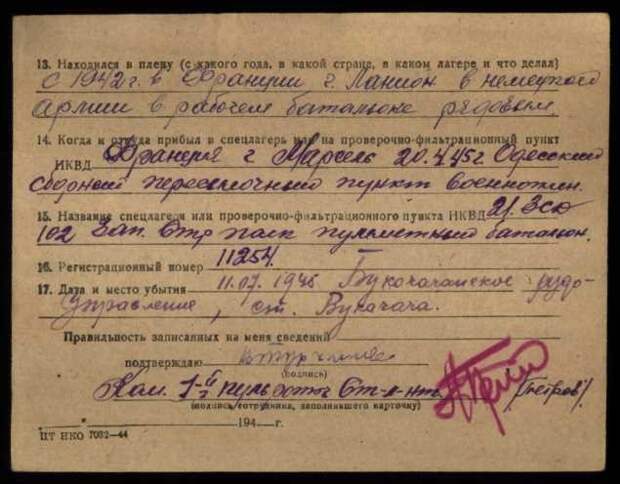 13. Находился в плену (с какого года, в какой стране, в каком лагере и что делал)
с 1942 г. в Франции г. Ланион в немецкой
армии в рабочем батальоне рядовым.
14. Когда и откуда прибыл в спецлагерь или на проверочно-фильтрационный пункт
НКВД Франция г Марсель 20.4.45 г Одесский
сборный пересыльный пункт военноплен.
15. Название спецлагеря или проверочно-фильтрационного пункта НКВД 21. Зсд
102 Зап. Стр полк пулеметный батальон.
16. Регистрационный номер 11254.
17. Дата и место убытия 11.07.1945 Букачачанское рудо-
управление, ст. Букачача.
Правильность записанных на меня сведений
подтверждаю
(подпись)
Ком. 1-й пульроты Ст-л-нт. (Петров).
(подпись сотрудника, заполнившего карточку)
" " 194 г.
ЦТ НКО 7082—44